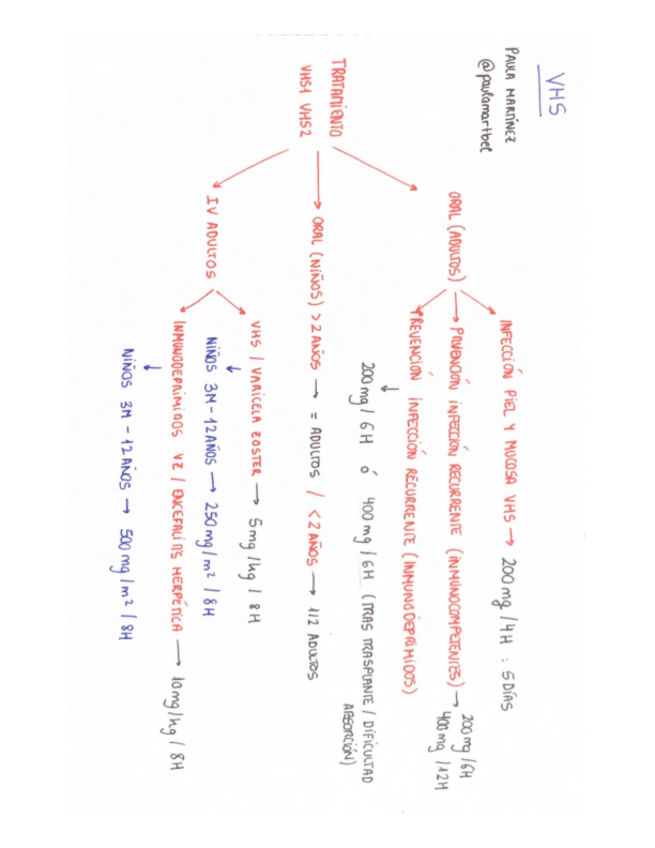 VHS
PAULA MARTÍNEZ
@paulamartbel
TRATAMIENTO
VHS1 VHS2
ORAL (ADULTOS)
INFECCIÓN PIEL Y MUCOSA VHS → 200 mg / 4H : 5 DÍAS
PRVENCIÓN INFECCIÓN RECURRENTE (INMUNOCOMPETENTES) → 200 mg / 6H
400 mg / 12H
PREVENCIÓN INFECCIÓN RECURRENTE (INMUNODEPRIMIDOS)
200 mg / 6H ó 400 mg / 6H (TRAS TRASPLANTE / DIFICULTAD
ABSORCIÓN)
ORAL (NIÑOS) > 2 AÑOS → = ADULTOS / < 2 AÑOS → 1/2 ADULTOS
IV ADULTOS
VHS / VARICELA ZOSTER → 5 mg / kg / 8H
NIÑOS 3M - 12 AÑOS → 250 mg / m² / 8H
INMUNODEPRIMIDOS VZ / ENCEFALITIS HERPÉTICA → 10 mg / kg / 8H
NIÑOS 3M - 12 AÑOS → 500 mg / m² / 8H